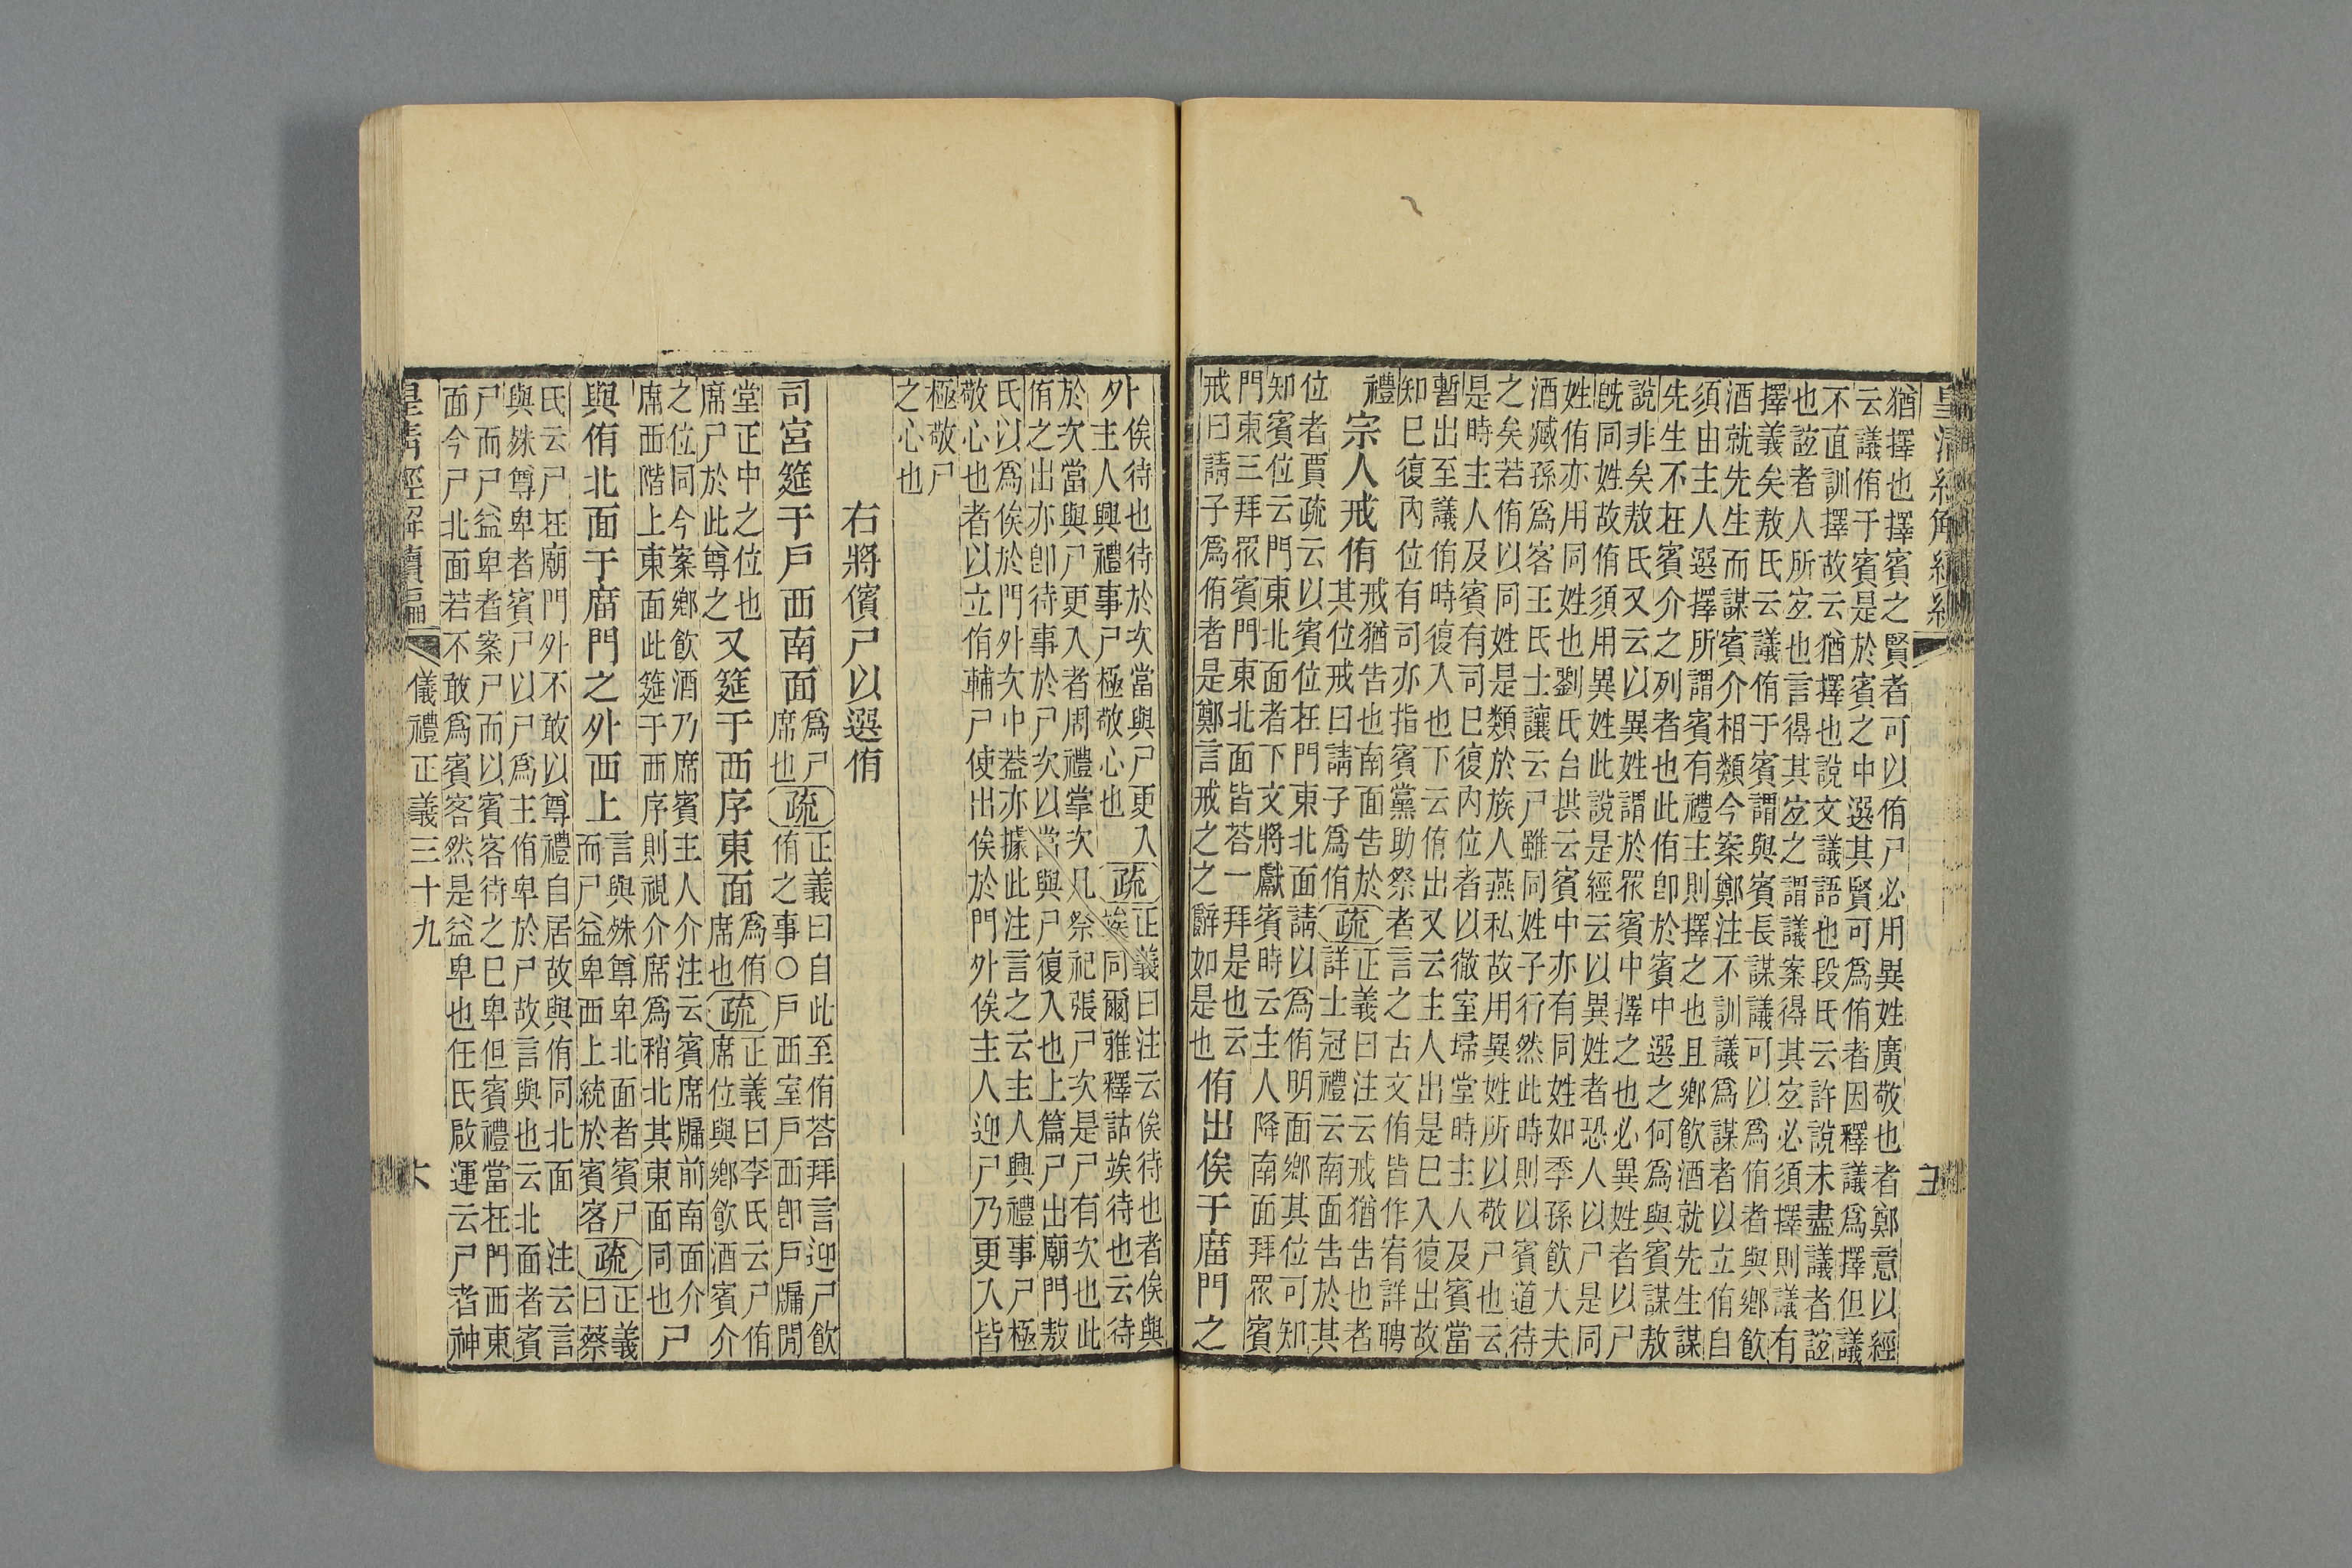 猶擇也擇賓之賢者可以侑尸必用異姓廣敬也者鄭意以經
云議侑于賓是於賓之中選其賢可爲侑者因釋議爲擇但議
不直訓擇故云猶擇也說文議語也段氏云許說未盡議者誼
也誼者人所宐也言得其宐之謂議案得其宐必須擇則議有
擇義矣敖氏云議侑于賓謂與賓長謀議可以爲侑者與鄉飲
酒就先生而謀賓介相類今案鄭注不訓議爲謀者以立侑自
須由主人選擇所謂賓有禮主則擇之也且鄉飲酒就先生謀
先生不在賓介之列者也此侑卽於賓中選之何爲與賓謀敖
說非矣敖氏又云以異姓謂於眾賓中擇之也必異姓者以尸
旣同姓故侑須用異姓此說是經云以異姓者恐人以尸是同
姓侑亦用同姓也劉氏台拱云賓中亦有同姓如季孫飲大夫
酒臧孫爲客王氏士讓云尸雖同姓子行然此時則以賓道待
之矣若侑以同姓是類於族人燕私故用異姓所以敬尸也云
是時主人及賓有司已復內位者以徹室埽堂時主人及賓當
暫出至議侑時復入也下云侑出又云主人出是已入復出故
知已復內位有司亦指賓黨助祭者言之古文侑皆作宥詳聘
禮
宗人戒侑
戒猶告也南面告於
其位戒曰請子爲侑
疏
正義曰注云戒猶告也者
詳士冠禮云南面告於其
位者賈疏云以賓位在門東北面請以爲侑明面鄉其位可知
知賓位云門東北面者下文將獻賓時云主人降南面拜眾賓
門東三拜眾賓門東北面皆荅一拜是也云
戒曰請子爲侑者是鄭言戒之之辭如是也
侑出俟于庿門之
外
俟待也待於次當與尸更入
主人興禮事尸極敬心也
疏
正義曰注云俟待也者俟與
竢同爾雅釋詁竢待也云待
於次當與尸更入者周禮掌次凡祭祀張尸次是尸有次也此
侑之出亦卽待事於尸次以當與尸復入也上篇尸出廟門敖
氏以爲俟於門外次中葢亦據此注言之云主人興禮事尸極
敬心也者以立侑輔尸使出俟於門外俟主人迎尸乃更入皆
極敬尸
之心也
右將儐尸以選侑
司宮筵于戶西南面
爲尸
席也
疏
正義曰自此至侑荅拜言迎尸飲
侑之事○戶西室戶西卽戶牖閒
堂正中之位也
席尸於此尊之
又筵于西序東面
爲侑
席也
疏
正義曰李氏云尸侑
席位與鄉飲酒賓介
之位同今案鄉飲酒乃席賓主人介注云賓席牖前南面介
席西階上東面此筵于西序則視介席爲稍北其東面同也
尸
與侑北面于庿門之外西上
言與殊尊卑北面者賓尸
而尸益卑西上統於賓客
疏
正義
曰蔡
氏云尸在廟門外不敢以尊禮自居故與侑同北面 注云言
與殊尊卑者賓尸以尸爲主侑卑於尸故言與也云北面者賓
尸而尸益卑者案尸而以賓客待之已卑但賓禮當在門西東
面今尸北面若不敢爲賓客然是益卑也任氏啟運云尸者神
皇清經解續編
儀禮正義三十九